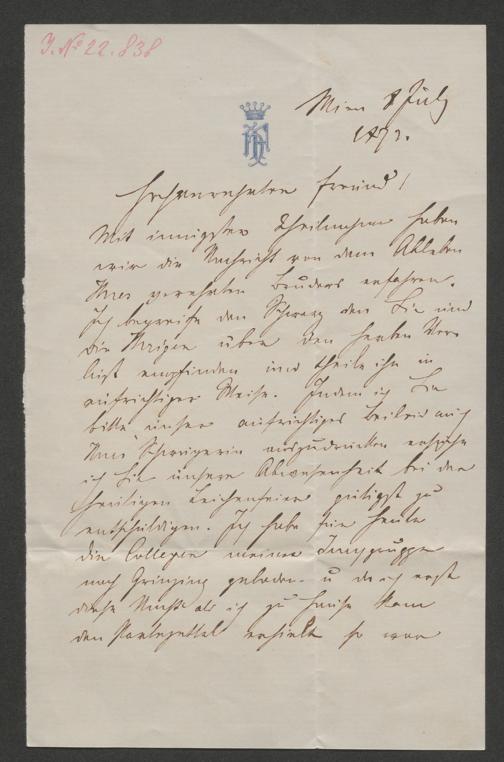 J. No 22.838
Wien 8 July
1873.
Hochverehrter Freund!
Mit innigster Theilnahme haben
wir die Nachricht von dem Ableben
Ihres verehrten Bruders erfahren.
Ich begreife den Schmerz den Sie und
die Ihrigen über den herben Ver-
lust empfinden und theile ihn in
aufrichtiger Weise. Indem ich Sie
bitte unser aufrichtiges Beileid auch
Ihrer Schwägerin auszudrücken ersuche
ich Sie unsere Abwesenheit bei der
heutigen Leichenfeier gütigst zu
entschuldigen. Ich habe für heute
die Collegen meiner Jurygruppe
nach Grinzing geladen u da ich erst
diese Nacht als ich zu Hause kam
den Partezettel erhielt so war